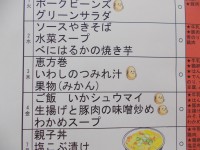 ポークビーンズ
グリーンサラダ
ソースやきそば
水菜スープ
べにはるかの焼き芋
恵方巻
いわしのつみれ汁
果物(みかん)
ご飯 いかシュウマイ
生揚げと豚肉の味噌炒め
わかめスープ
親子丼
塩こぶ漬け